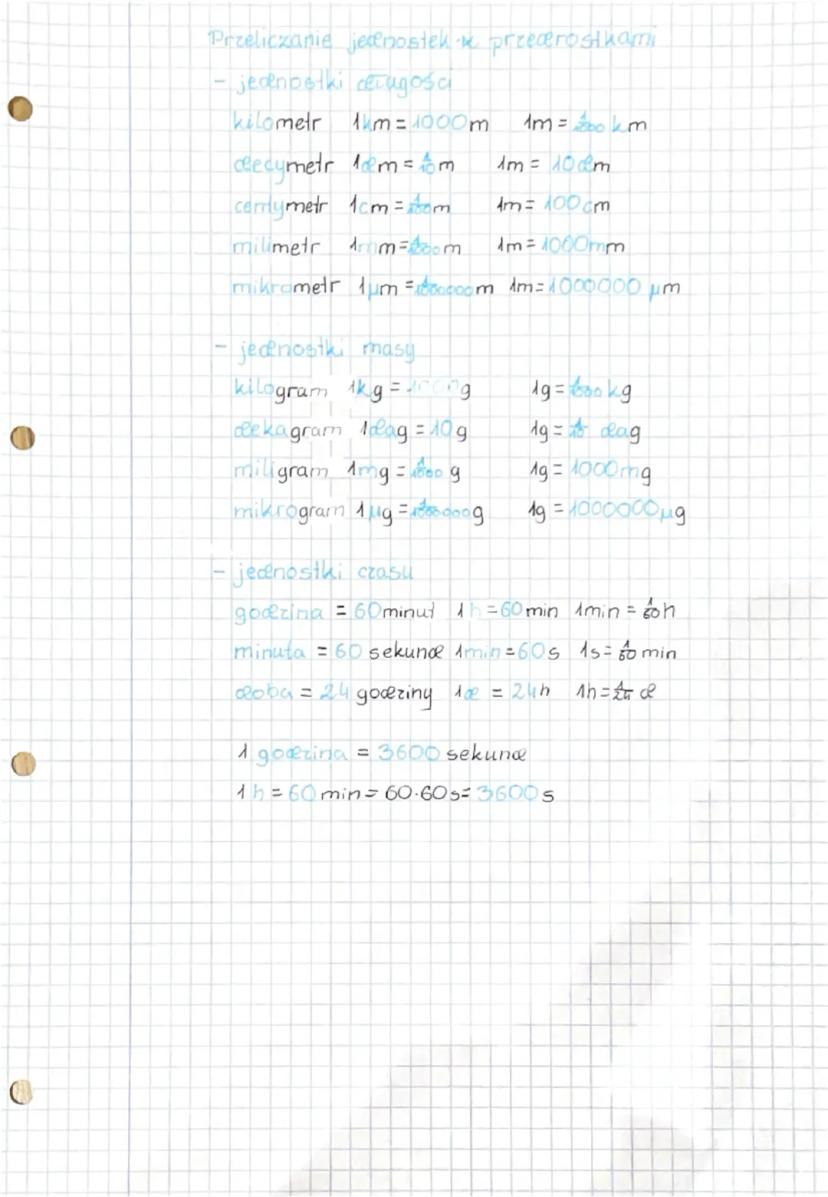 Przeliczanie jednostek z przedrostkami
- jednostki długości
kilometr 1km = 1000m 1m = 1/1000 km
decymetr 1dm = 1/10 m 1m = 10dm
centymetr 1cm = 1/100 m 1m = 100cm
milimetr 1mm = 1/1000 m 1m = 1000mm
mikrometr 1μm = 1/1000000 m 1m = 1000000 μm
- jednostki masy
kilogram 1kg = 1000g 1g = 1/1000 kg
dekagram 1dag = 10g 1g = 1/10 dag
miligram 1mg = 1/1000 g 1g = 1000mg
mikrogram 1μg = 1/1000000 g 1g = 1000000μg
- jednostki czasu
godzina = 60 minut 1h = 60 min 1min = 1/60 h
minuta = 60 sekund 1min = 60s 1s = 1/60 min
doba = 24 godziny 1d = 24h 1h = 1/24 d
1 godzina = 3600 sekund
1h = 60 min = 60·60s = 3600s